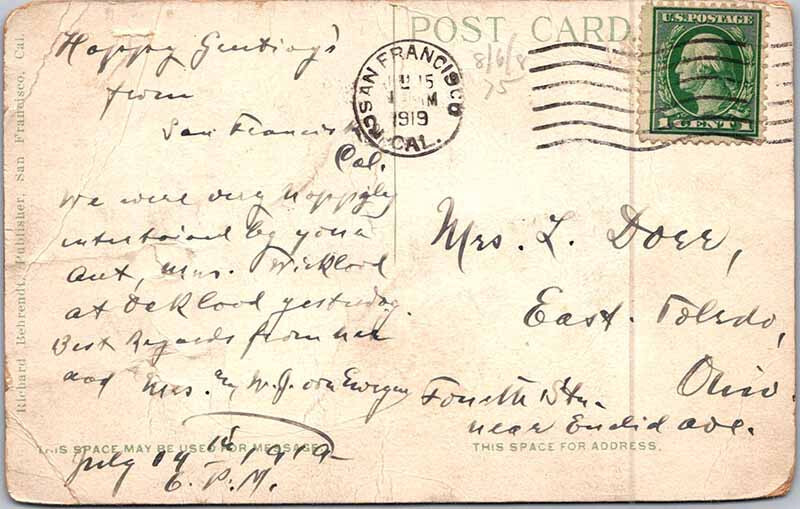 POST CARD
U.S. POSTAGE
1 CENT 1
SAN FRANCISCO
15
1919
CAL.
8/6/8
15
Richard Behrendt, Publisher, San Francisco, Cal.
Happy Greetings
from
San Francisco
Cal.
We were very happyly
intertained by your
Aunt, Mrs.
at yesterday.
Best Regards from
and Mrs. W. J. von
July 14th 1919
6. P. M.
Mrs. L. Doer,
East. Toledo,
Ohio.
Fourth Str.
near Euclid Ave.
THIS SPACE MAY BE USED FOR MESSAGE
THIS SPACE FOR ADDRESS.